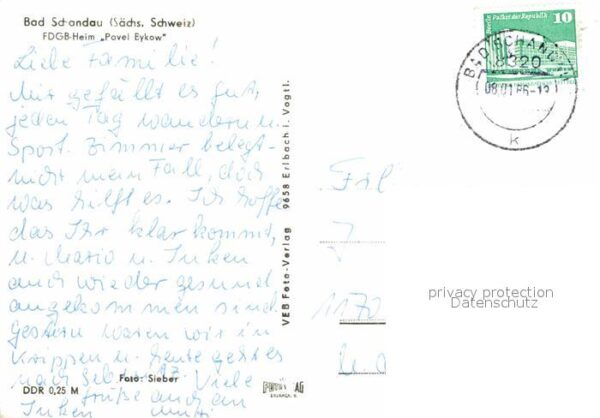 Bad Schandau (Sächs. Schweiz)
FDGB-Heim „Pavel Bykow"
Liebe Familie!
Mir gefällt es gut,
jeden Tag wandern u.
Sport. Zimmer belegt-
nicht mein Fall, doch
was hilft es. Ich hoffe
das Ihr klar kommt,
u. Mario u. Inken
auch wieder gesund
angekommen sind.
Gestern waren wir in
Krippen u. heute geht es
nach Sebnitz. Viele
Grüße auch an
Inken Mutti
Foto: Sieber
DDR 0,25 M
VEB Foto-Verlag 9658 Erlbach i. Vogtl.
Berlin, Palast der Republik 10
BAD SCHANDAU
8320
08.01.86-13
k
1170
privacy protection
Datenschutz